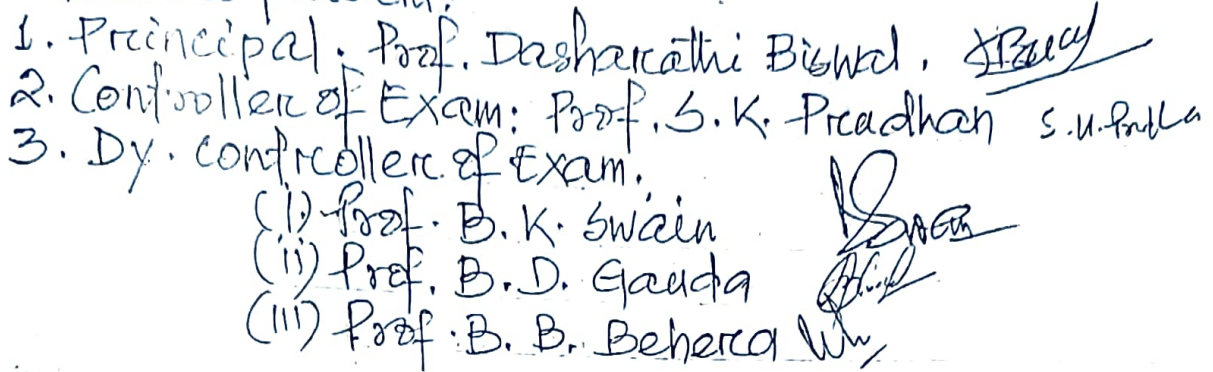 1. Principal: Prof. Dasharathi Biswal.
2. Controller of Exam: Prof. S. K. Pradhan
3. Dy. Controller of Exam.
(i) Prof. B. K. Swain
(ii) Prof. B. D. Gauda
(iii) Prof. B. B. Behera